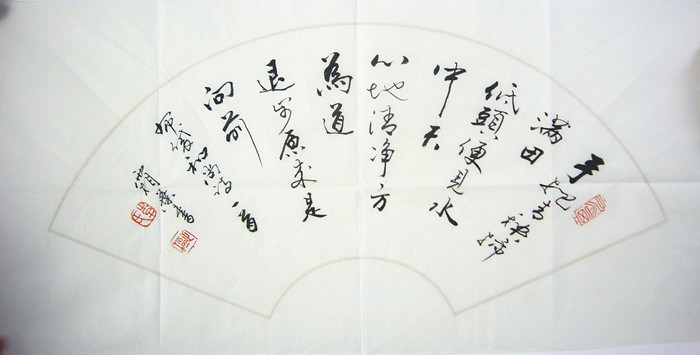 手把青秧插
满田
低頭便見水
中天
心地清净方
為道
退步原来是
向前
和尚诗一首
書